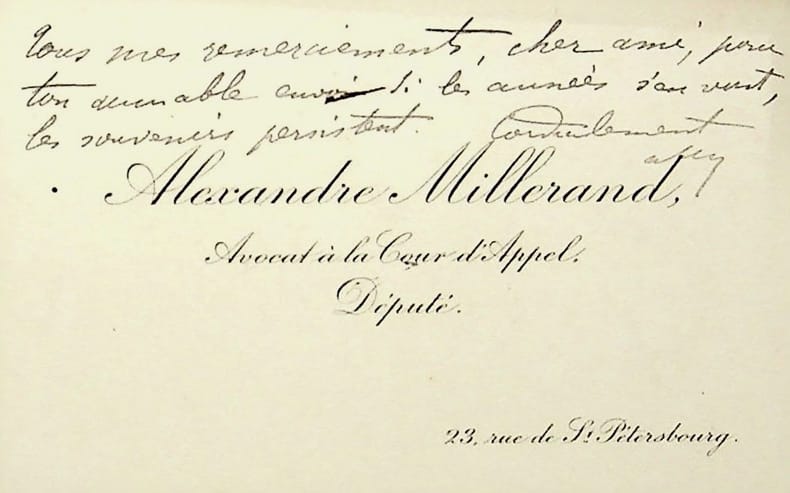 Tous mes remerciements, cher ami, pour
ton aimable envoi Si les années s'en vont,
les souvenirs persistent. Cordialement
Alexandre Millerand,
Avocat à la Cour d'Appel.
Député.
23, rue de St Pétersbourg.